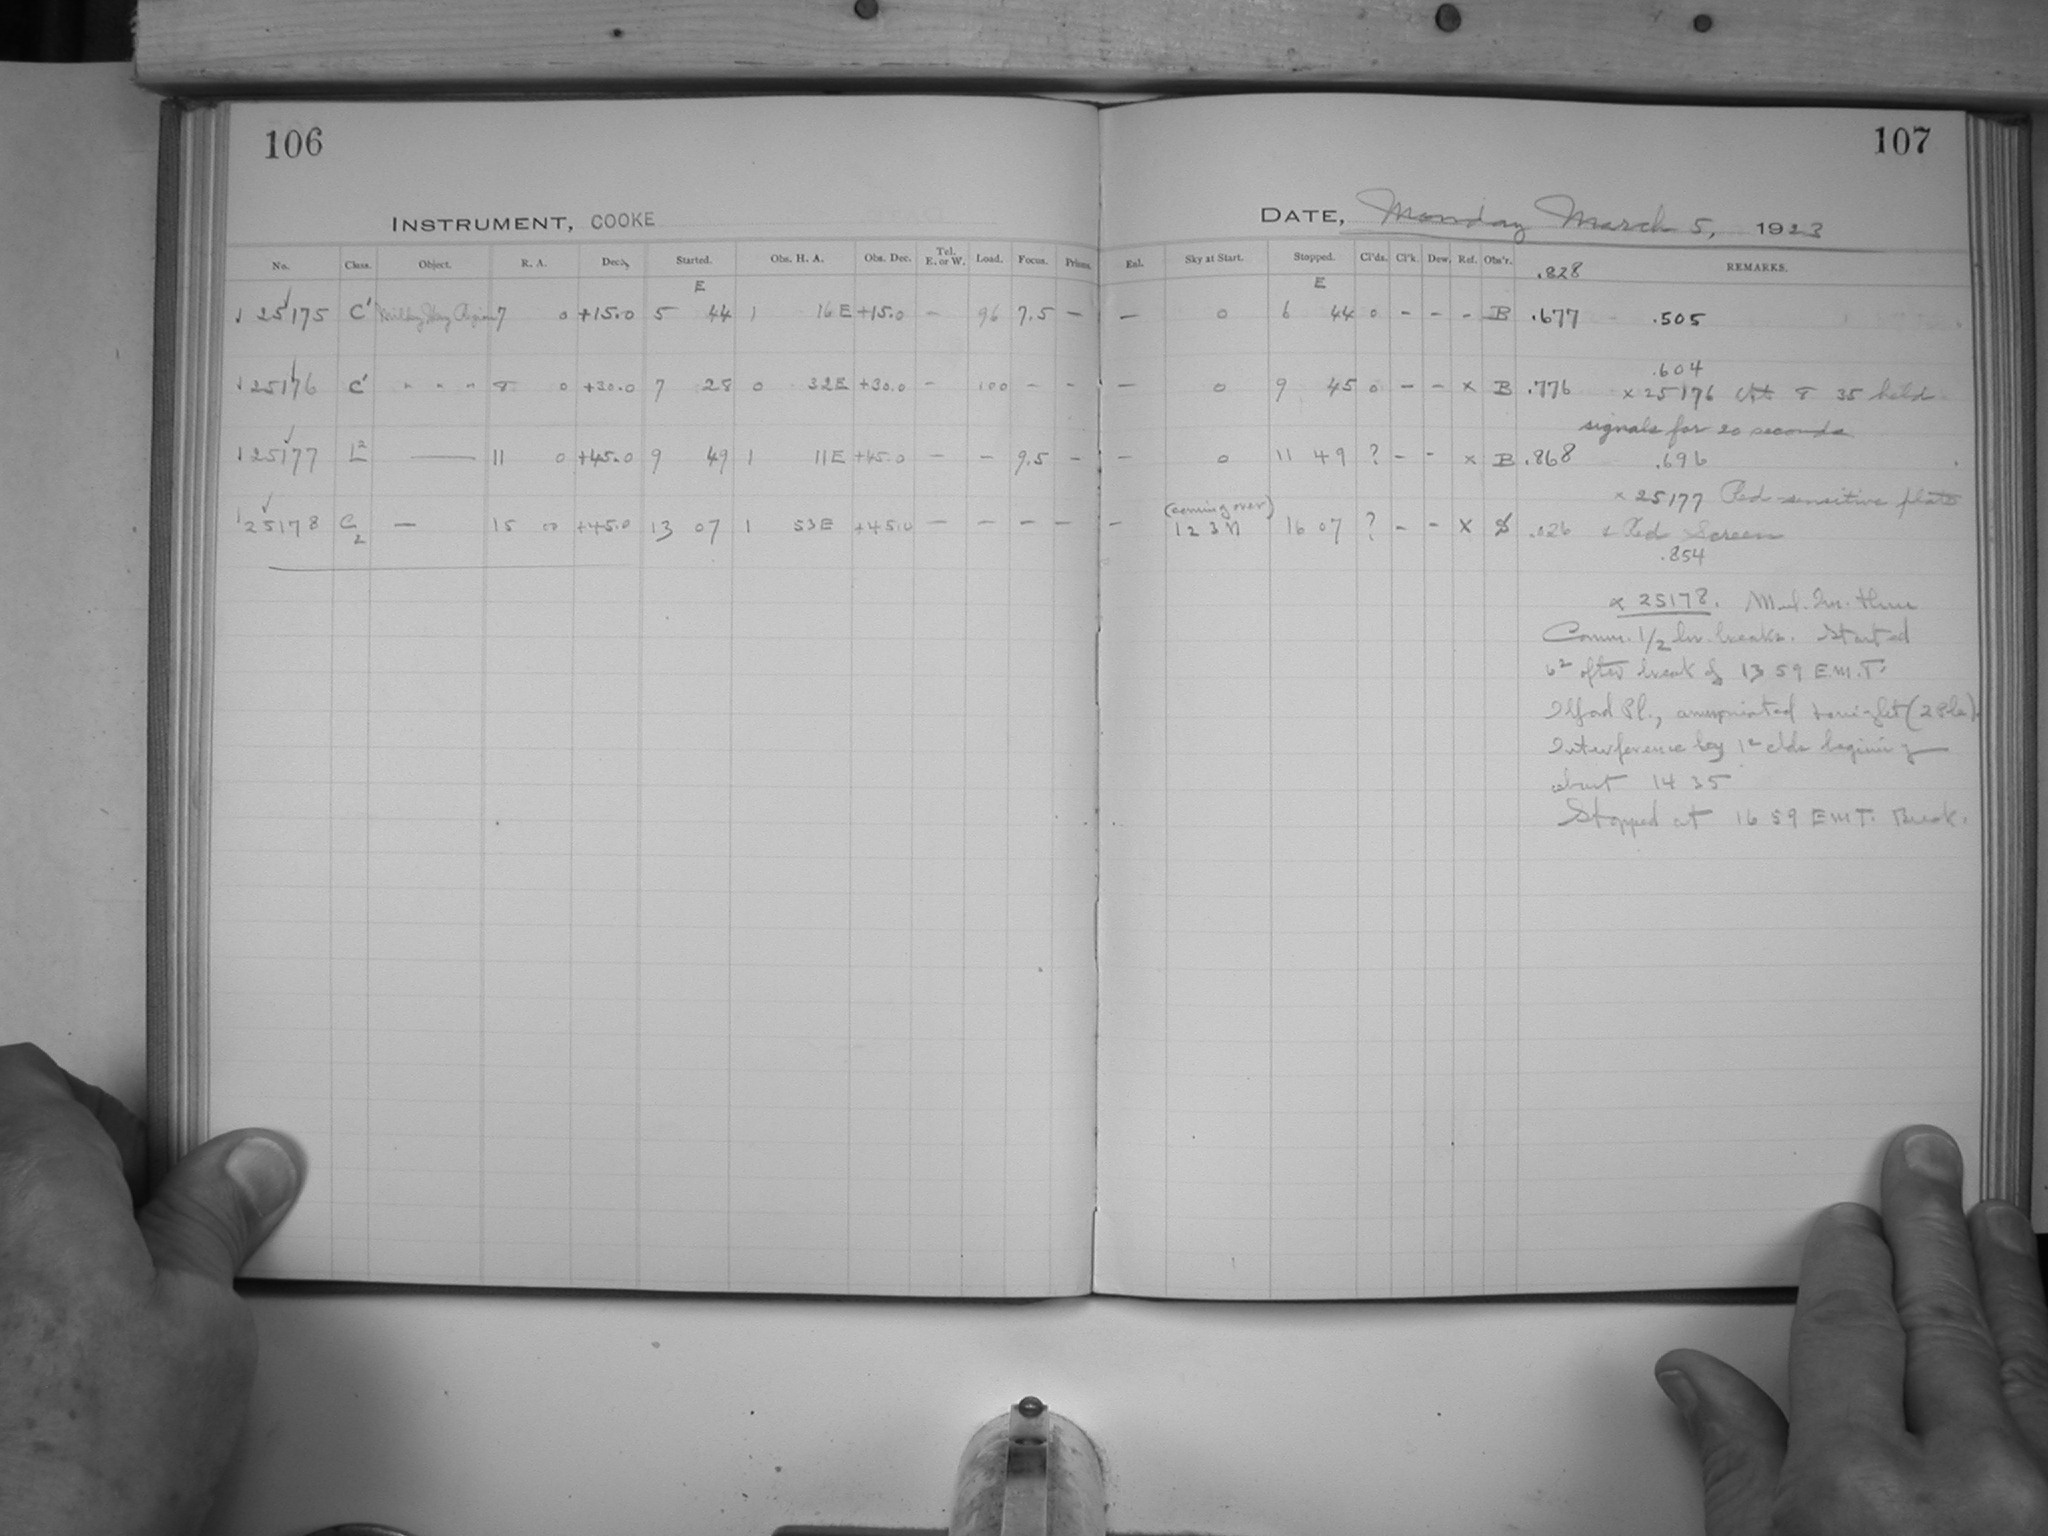 106
INSTRUMENT, COOKE
No. Class. Object. R. A. Dec. Started. Obs. H. A. Obs. Dec. Tel. E. or W. Load. Focus. Prisms.
E
25175 C' Milky Way Region 7 0 +15.0 5 44 1 16 E +15.0 - 96 7.5 -
25176 C' " " " 8 0 +30.0 7 28 0 32E +30.0 - 100 - -
25177 L2 — 11 0 +45.0 9 49 1 11E +45.0 - - 9.5 -
25178 C2 — 15 00 +45.0 13 07 1 53E +45.0 - - - -
107
DATE, Monday March 5, 1923
Enl. Sky at Start. Stopped. Cl'ds. Cl'k. Dew. Ref. Obs'r. REMARKS.
E .828
— 0 6 44 0 - - - B .677 .505
.604
— 0 9 45 0 - - x B .776 x 25176 At 8 35 held
signals for 20 seconds
— 0 11 49 ? - - x B .868 .696
x 25177 Red sensitive plate
(coming over)
— 1 2 3 N 16 07 ? - - x S .026 & Red Screen
.854
x 25178. three
Comm. 1/2 hr. breaks. Started
after break of 13 59 E.M.T.
Ilford Pl., ammoniated to-night (2 Pls).
Interference by clds beginning
about 14 35
Stopped at 16 59 E.M.T. Break.